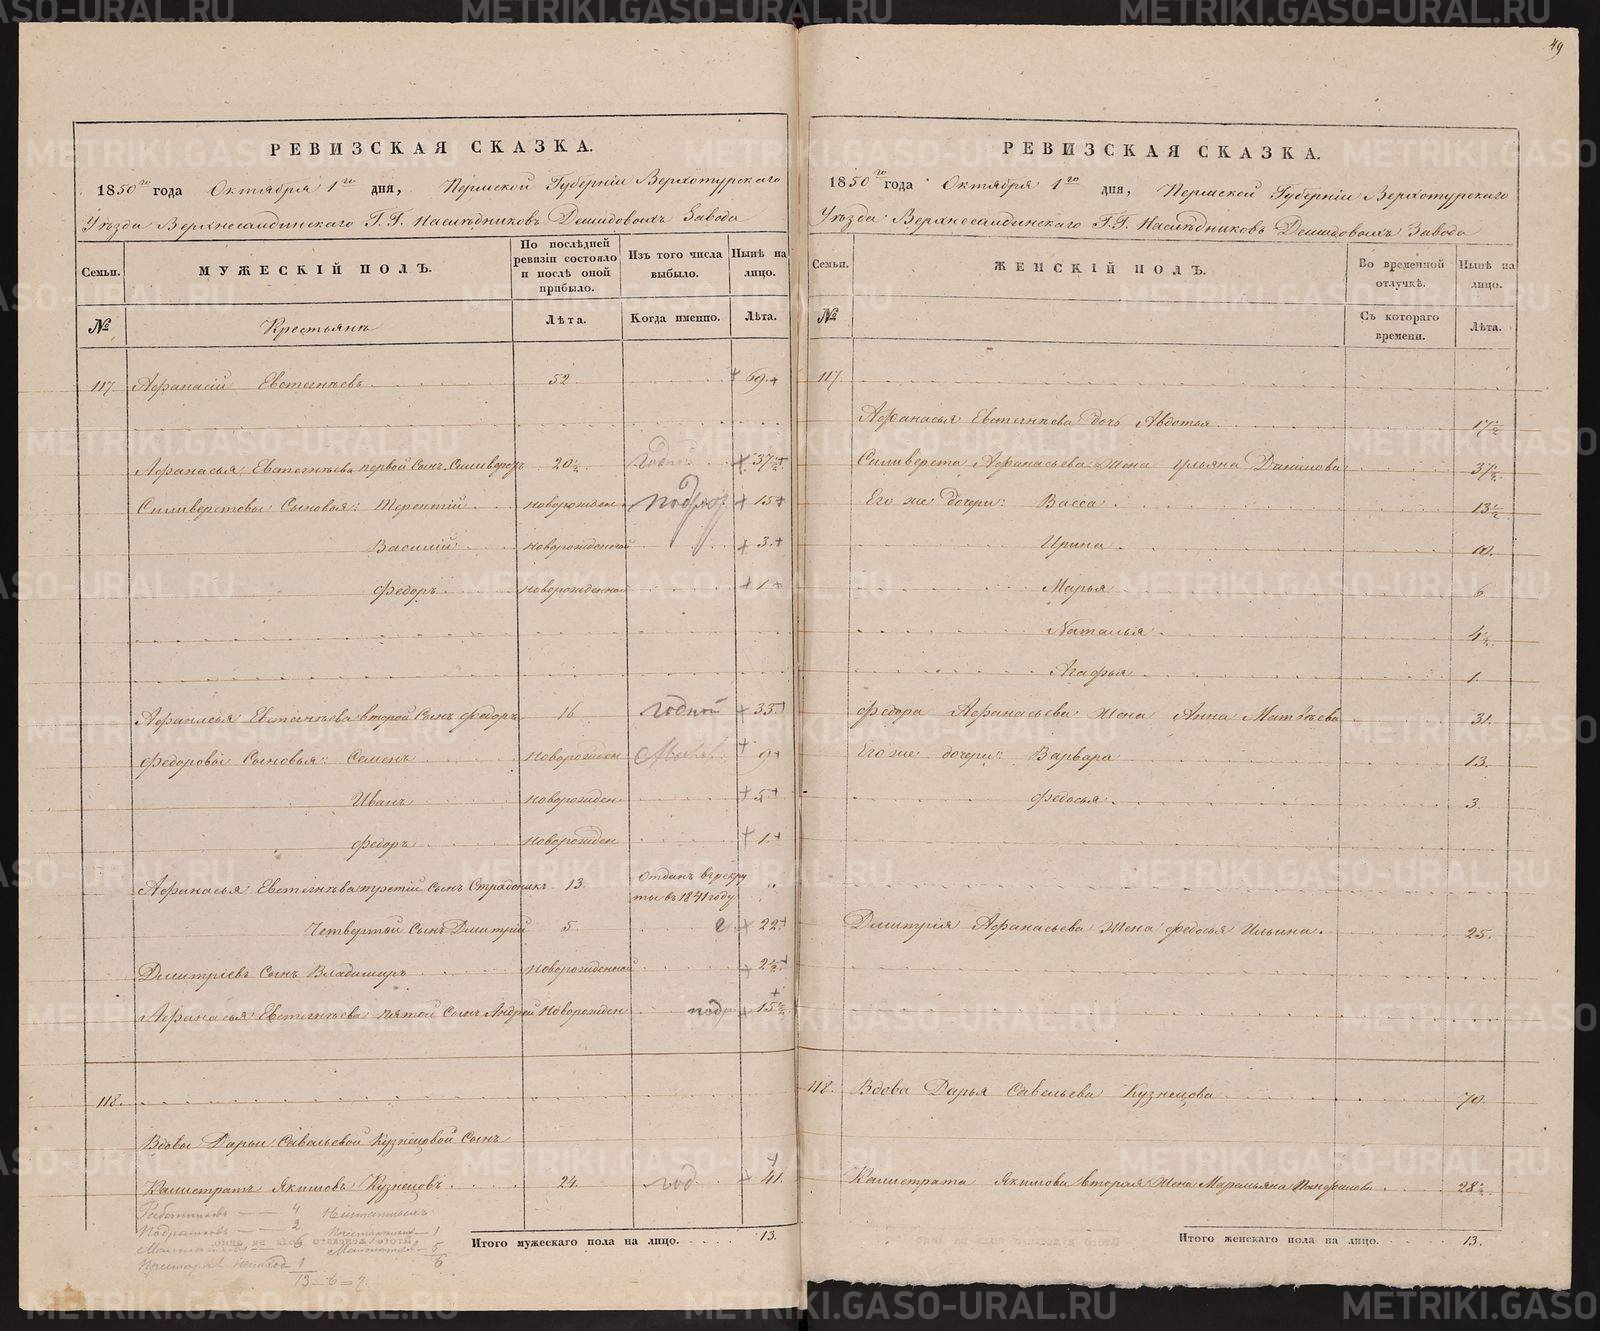 РЕВИЗСКАЯ СКАЗКА.
1850го года Октября 1го дня, Пермской Губерніи Верхотурскаго
Уѣзда Верхнесалдинскаго Г.Г. Наслѣдниковъ Демидовыхъ Завода
Семьи.
МУЖЕСКІЙ ПОЛЪ.
По послѣдней ревизіи состояло и послѣ оной прибыло.
Изъ того числа выбыло.
Нынѣ на лицо.
№
Крестьянъ
Лѣта.
Когда именно.
Лѣта.
117. Афанасій Евстегнѣевъ 52 69.
Афанасья Евстегнѣева первой Сынъ Силиверстъ 20½ годной 37½
Силиверстовы Сыновья: Терентій новорожден. подр 15
Василій новорожденной 3.
Федоръ новорожденной 1
Афанасья Евстегнѣева второй Сынъ Федоръ 16 годной 33
Федоровы Сыновья: Семенъ новорожден 9
Иванъ новорожден 5
Федоръ новорожден 1
Афанасья Евстегнѣева третій Сынъ 13. Отданъ въ рекру
ты въ 1841 году „
Четвертый Сынъ Дмитрій 5. 22
Дмитріевъ Сынъ Владимиръ новорожденной 2½
Афанасья Евстегнѣева пятой Сынъ Андрей Новорожден подр 15½
118.
Вдовы Дарьи Савельевой Кузнецовой Сынъ
Калистратъ Якимовъ Кузнецовъ 24. год 41.
Работниковъ — 4
Подростковъ — 2
6
1
13 – 6 = 7.
1
5
6
Итого мужескаго пола на лицо. 13.
49
РЕВИЗСКАЯ СКАЗКА.
1850го года Октября 1го дня, Пермской Губерніи Верхотурскаго
Уѣзда Верхнесалдинскаго Г.Г. Наслѣдниковъ Демидовыхъ Завода
Семьи.
ЖЕНСКІЙ ПОЛЪ.
Во временной отлучкѣ.
Нынѣ на лицо.
№
Съ котораго времени.
Лѣта.
117.
Афанасья Евстегнѣева дочь Авдотья 17½
Силиверста Афанасьева Жена Ульяна Данилова 37½
Его же дочери: Васса 13½
Ирина 10.
Марья 6
Наталья 4½
Агафья 1.
Федора Афанасьева Жена Анна Матвѣева 31.
Его же дочери: Варвара 13.
Федосья 3.
Дмитрія Афанасьева Жена Федосья Ильина. 25.
118. Вдова Дарья Савельева Кузнецова 70.
Калистрата Якимова вторая Жена Маремьяна Панфилова 28½
Итого женскаго пола на лицо. 13.
METRIKI.GASO-URAL.RU